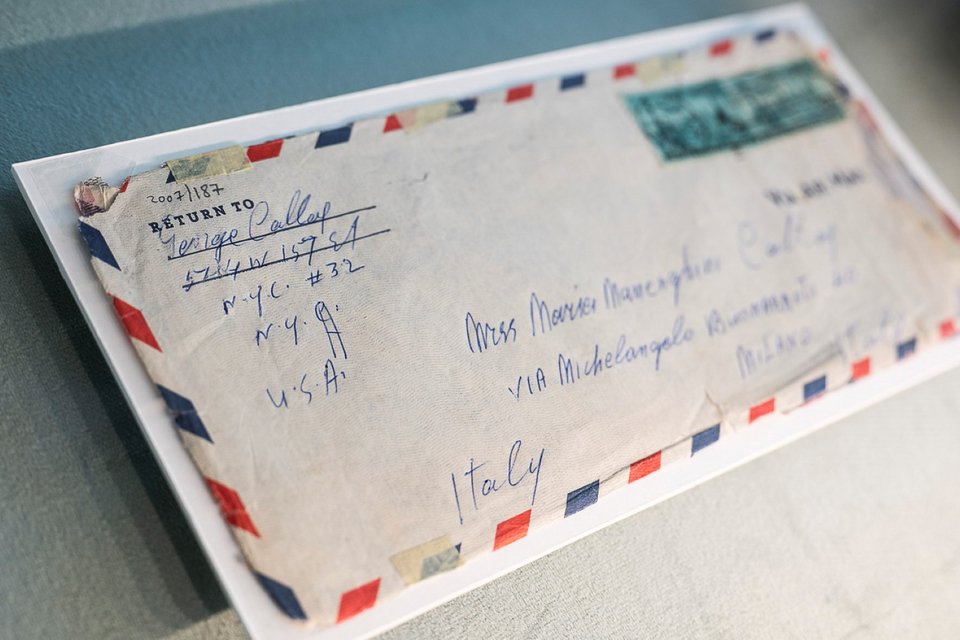 2007/187
RETURN TO
George Callay
57 W 157 St
N.Y.C. #32
N.Y.
U.S.A.
VIA AIR MAIL
Mrss Maria Callay
VIA Michelangelo Buonarroti
MILANO Italy
Italy